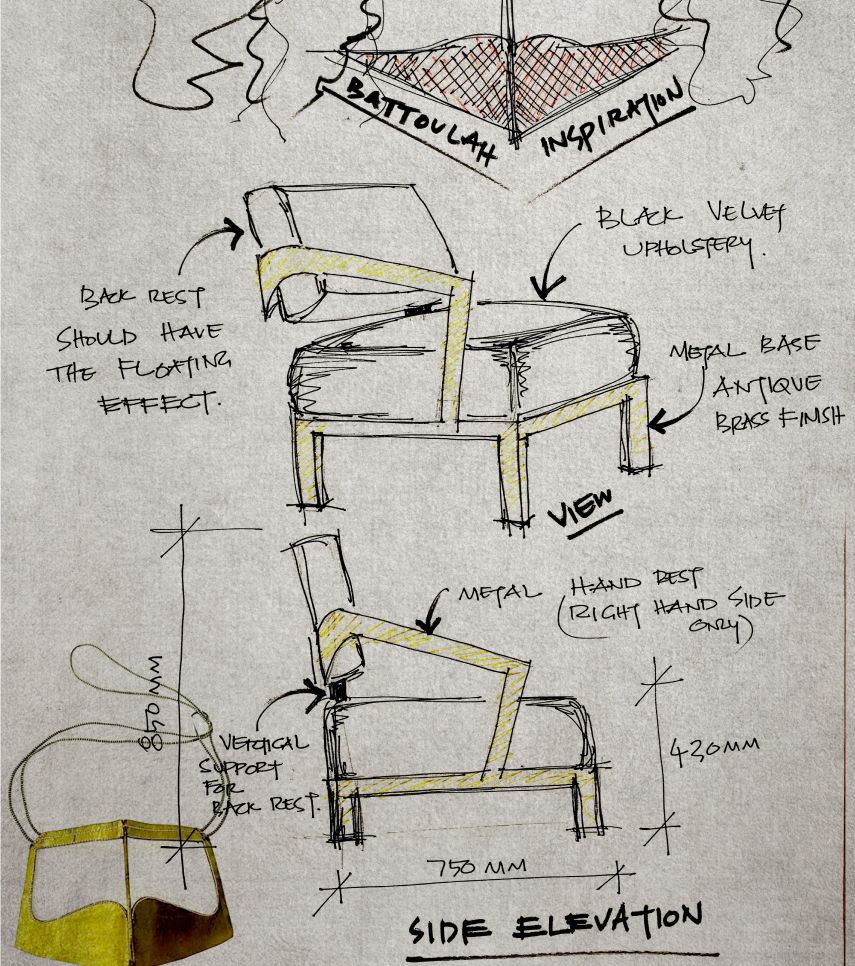 BATTOULAH INSPIRATION
BLACK VELVET
UPHOLSTERY.
BACK REST
SHOULD HAVE
THE FLOATING
EFFECT.
METAL BASE
ANTIQUE
BRASS FINISH
VIEW
METAL HAND REST
(RIGHT HAND SIDE
ONLY)
850 MM
VERTICAL
SUPPORT
FOR
BACK REST.
430MM
750 MM
SIDE ELEVATION